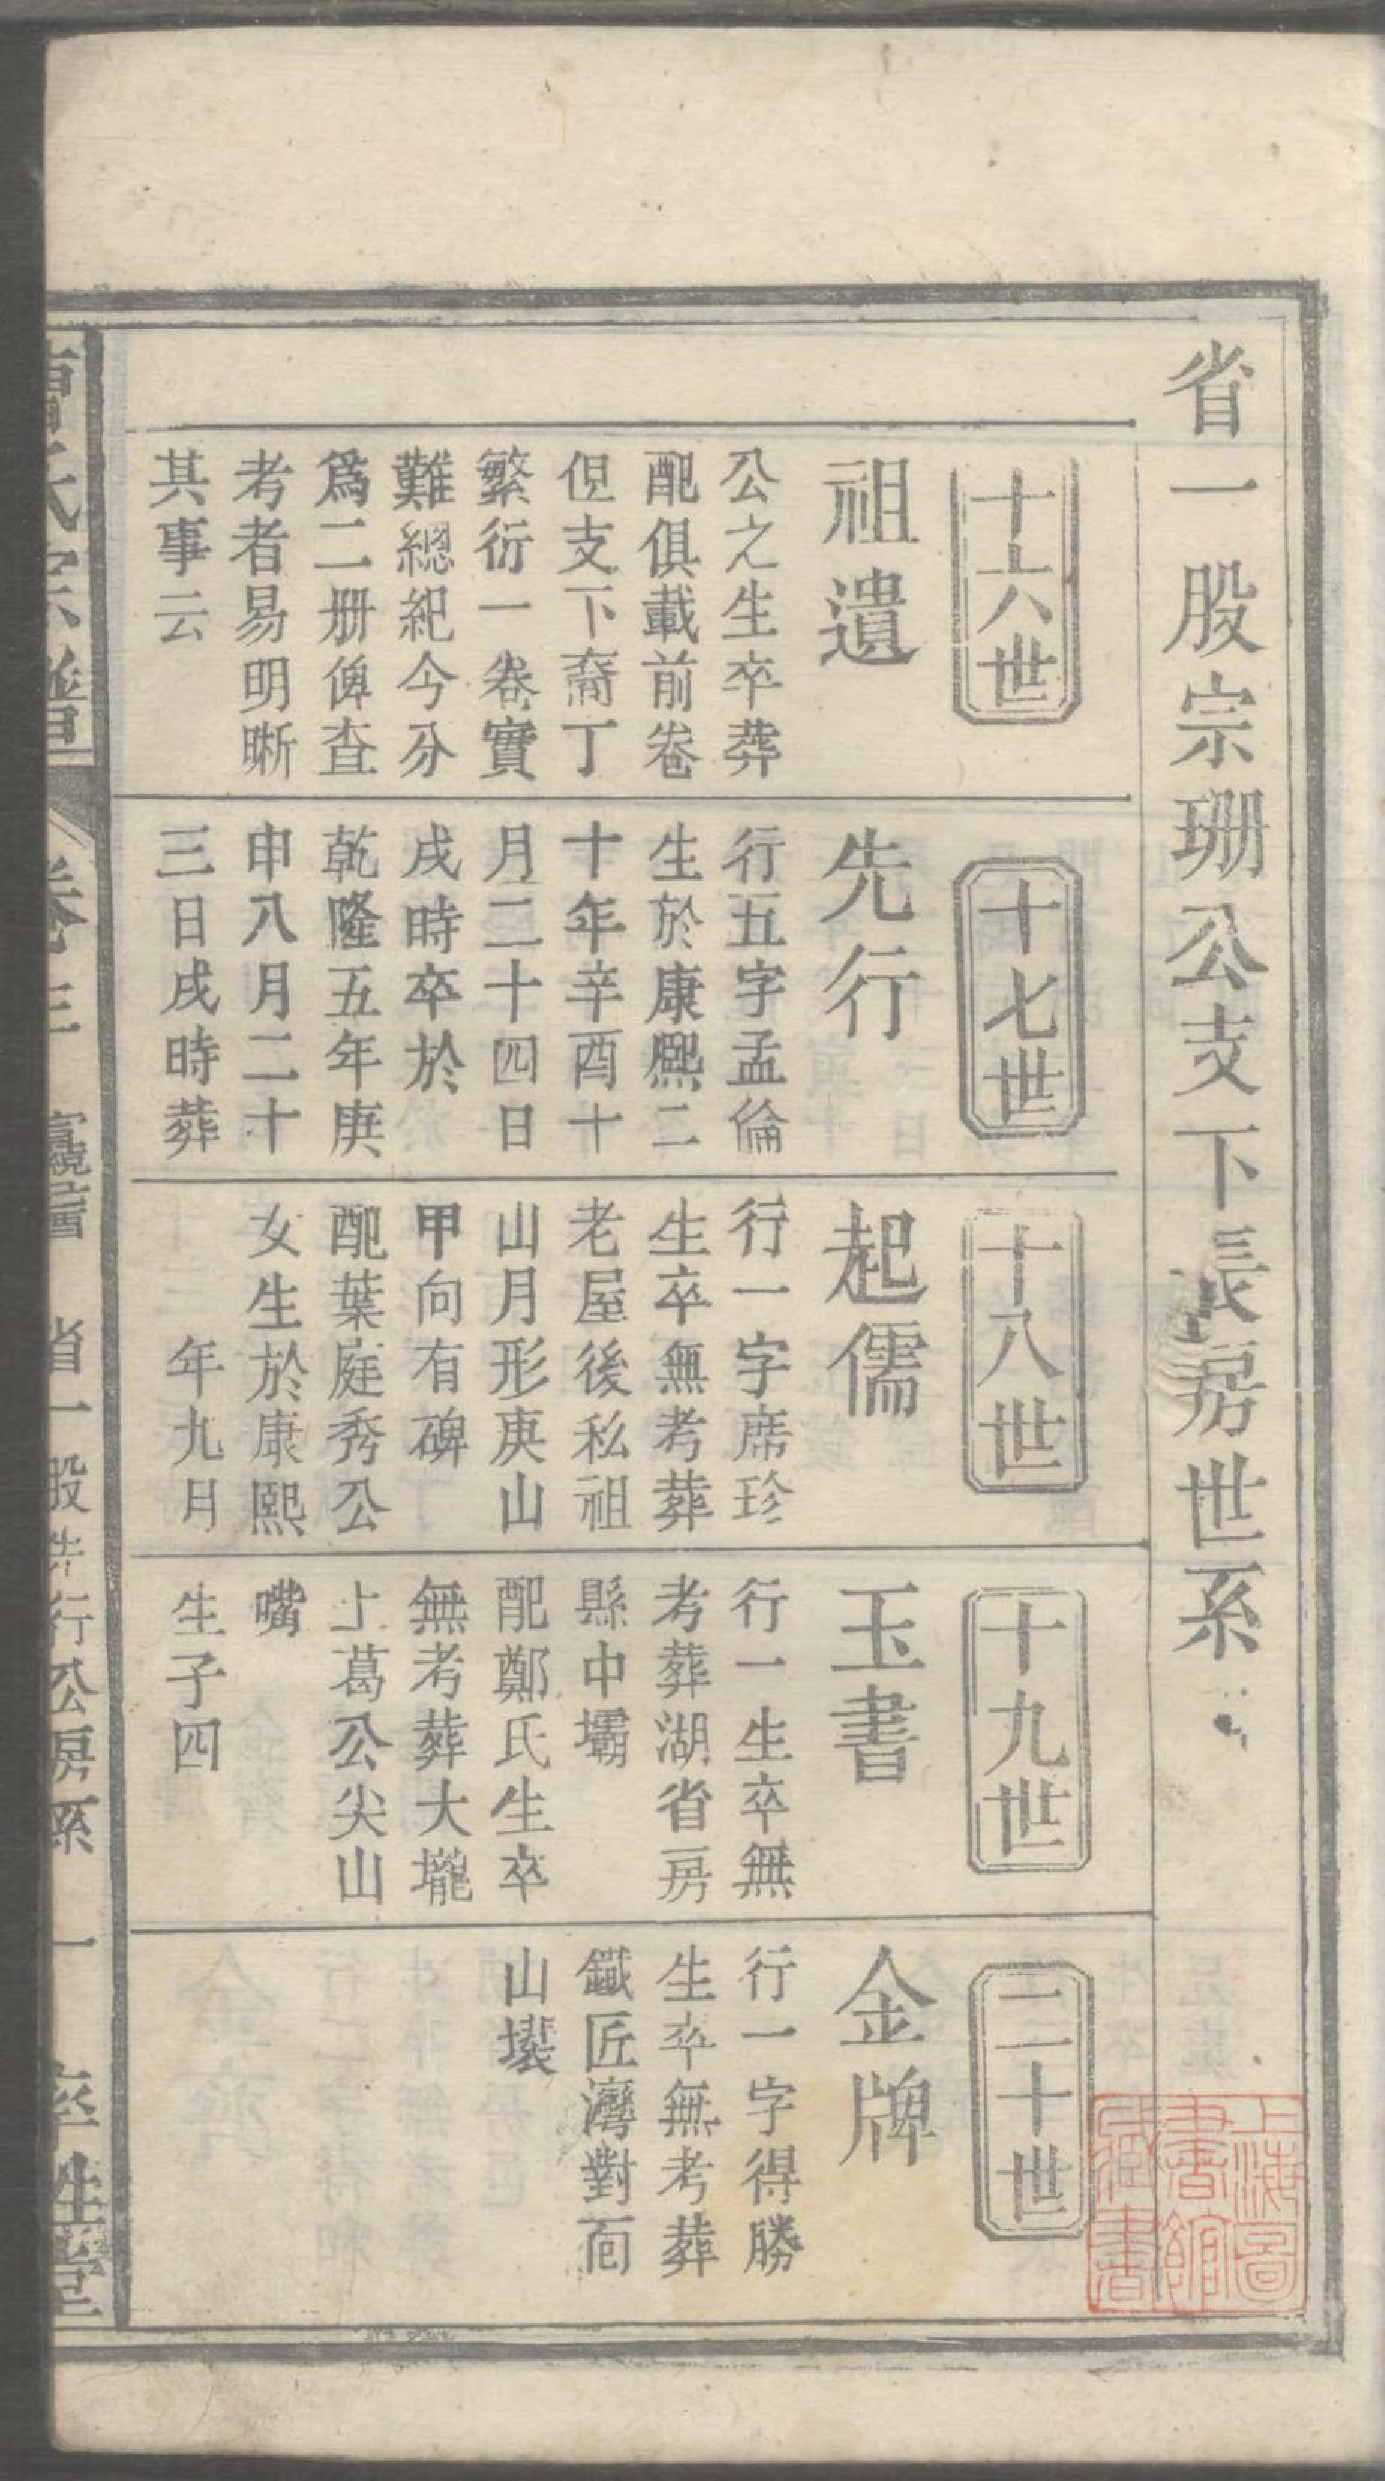 省一股宗珊公支下長房世系
十六世
祖遺
公之生卒葬
配俱載前卷
但支下裔丁
繁衍一卷實
難總紀今分
爲二册俾查
考者易明晰
其事云
十七世
先行
行五字孟倫
生於康熙二
十年辛酉十
月二十四日
戌時卒於
乾隆五年庚
申八月二十
三日戌時葬
十八世
起儒
行一字席珍
生卒無考葬
老屋後私祖
山月形庚山
甲向有碑
配葉庭秀公
女生於康熙
年九月
十九世
玉書
行一生卒無
考葬湖省房
縣中壩
配鄭氏生卒
無考葬大壠
上葛公尖山
嘴
生子四
二十世
金牌
行一字得勝
生卒無考葬
鐵匠灣對面
山塝
曹氏宗譜
卷三
省一股先行公房系
一
上海圖
書館
藏書